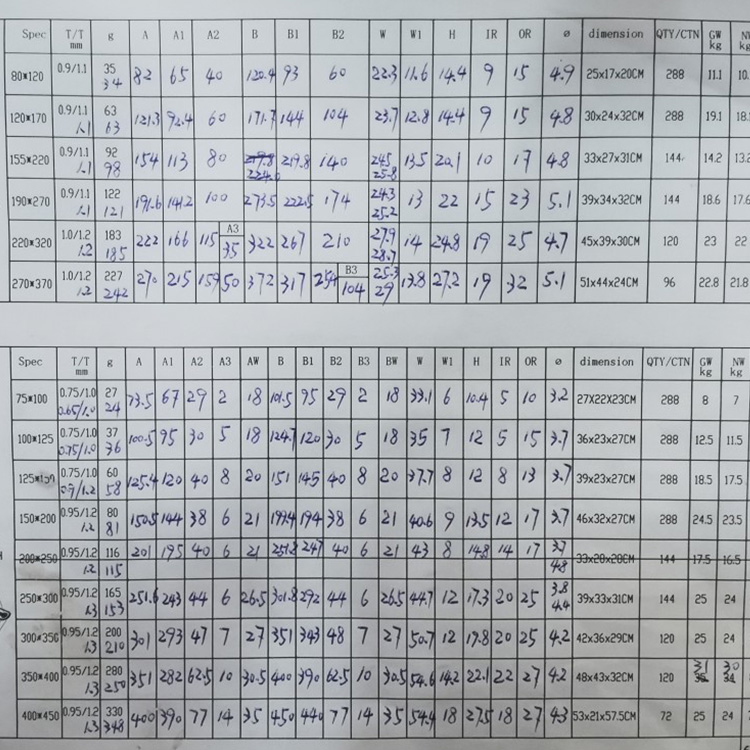 Spec T/T mm g A A1 A2 B B1 B2 W W1 H IR OR ø dimension QTY/CTN GW kg NW kg
80*120 0.9/1.1 35 34 82 65 40 120.4 93 60 22.3 11.6 14.4 9 15 4.9 25x17x20CM 288 11.1 10.
120*170 0.9/1.1 1.1 63 63 121.3 92.4 60 171.7 144 104 23.7 12.8 14.4 9 15 4.8 30x24x32CM 288 19.1 18.
155*220 0.9/1.1 1.1 92 98 154 113 80 219.8 224.0 219.8 140 24.5 25.8 13.5 20.1 10 17 4.8 33x27x31CM 144 14.2 13.2
190*270 0.9/1.1 1.1 122 121 191.6 141.2 100 273.5 222.5 174 24.3 25.2 13 22 15 23 5.1 39x34x32CM 144 18.6 17.6
220*320 1.0/1.2 1.2 183 185 222 166 115 A3 35 322 267 210 27.9 28.7 14 24.8 19 25 4.7 45x39x30CM 120 23 22
270*370 1.0/1.2 1.2 227 242 270 215 159 50 372 317 254 B3 104 25.3 29 13.8 27.2 19 32 5.1 51x44x24CM 96 22.8 21.8
Spec T/T mm g A A1 A2 A3 AW B B1 B2 B3 BW W W1 H IR OR ø dimension QTY/CTN GW kg NW kg
75*100 0.75/1.0 0.65/1.0 27 24 73.5 67 29 2 18 101.5 95 29 2 18 33.1 6 10.4 5 10 3.2 27X22X23CM 288 8 7
100*125 0.75/1.0 0.75/1.0 37 36 100.5 95 30 5 18 124.7 120 30 5 18 35 7 12 5 15 3.7 36x23x27CM 288 12.5 11.5
125*150 0.75/1.0 0.9/1.2 60 58 125.4 120 40 8 20 151 145 40 8 20 37.7 8 12 8 13 3.7 39x23x27CM 288 18.5 17.5
150*200 0.95/1.2 1.2 80 81 150.5 144 38 6 21 199.4 194 38 6 21 40.6 9 13.5 12 17 3.7 46x32x27CM 288 24.5 23.5
200*250 0.95/1.2 1.2 116 115 201 195 40 6 21 251.8 247 40 6 21 43 8 14.8 14 17 3.7 4.8 33x20x20CM 144 17.5 16.5
250*300 0.95/1.2 1.3 165 153 251.6 243 44 6 26.5 301.8 292 44 6 26.5 44.7 12 17.3 20 25 3.8 4.4 39x33x31CM 144 25 24
300*350 0.95/1.2 1.3 200 210 301 293 47 7 27 351 343 48 7 27 50.7 12 19.8 20 25 4.2 42x36x29CM 120 25 24
350*400 0.95/1.2 1.3 280 250 351 282 62.5 10 30.5 400 390 62.5 10 30.5 54.6 14.2 22.1 22 27 4.2 48x43x32CM 120 31 30
400*450 0.95/1.2 1.3 330 348 400 390 77 14 35 450 440 77 14 35 54.4 18 27.5 18 27 4.3 53x21x57.5CM 72 25 24